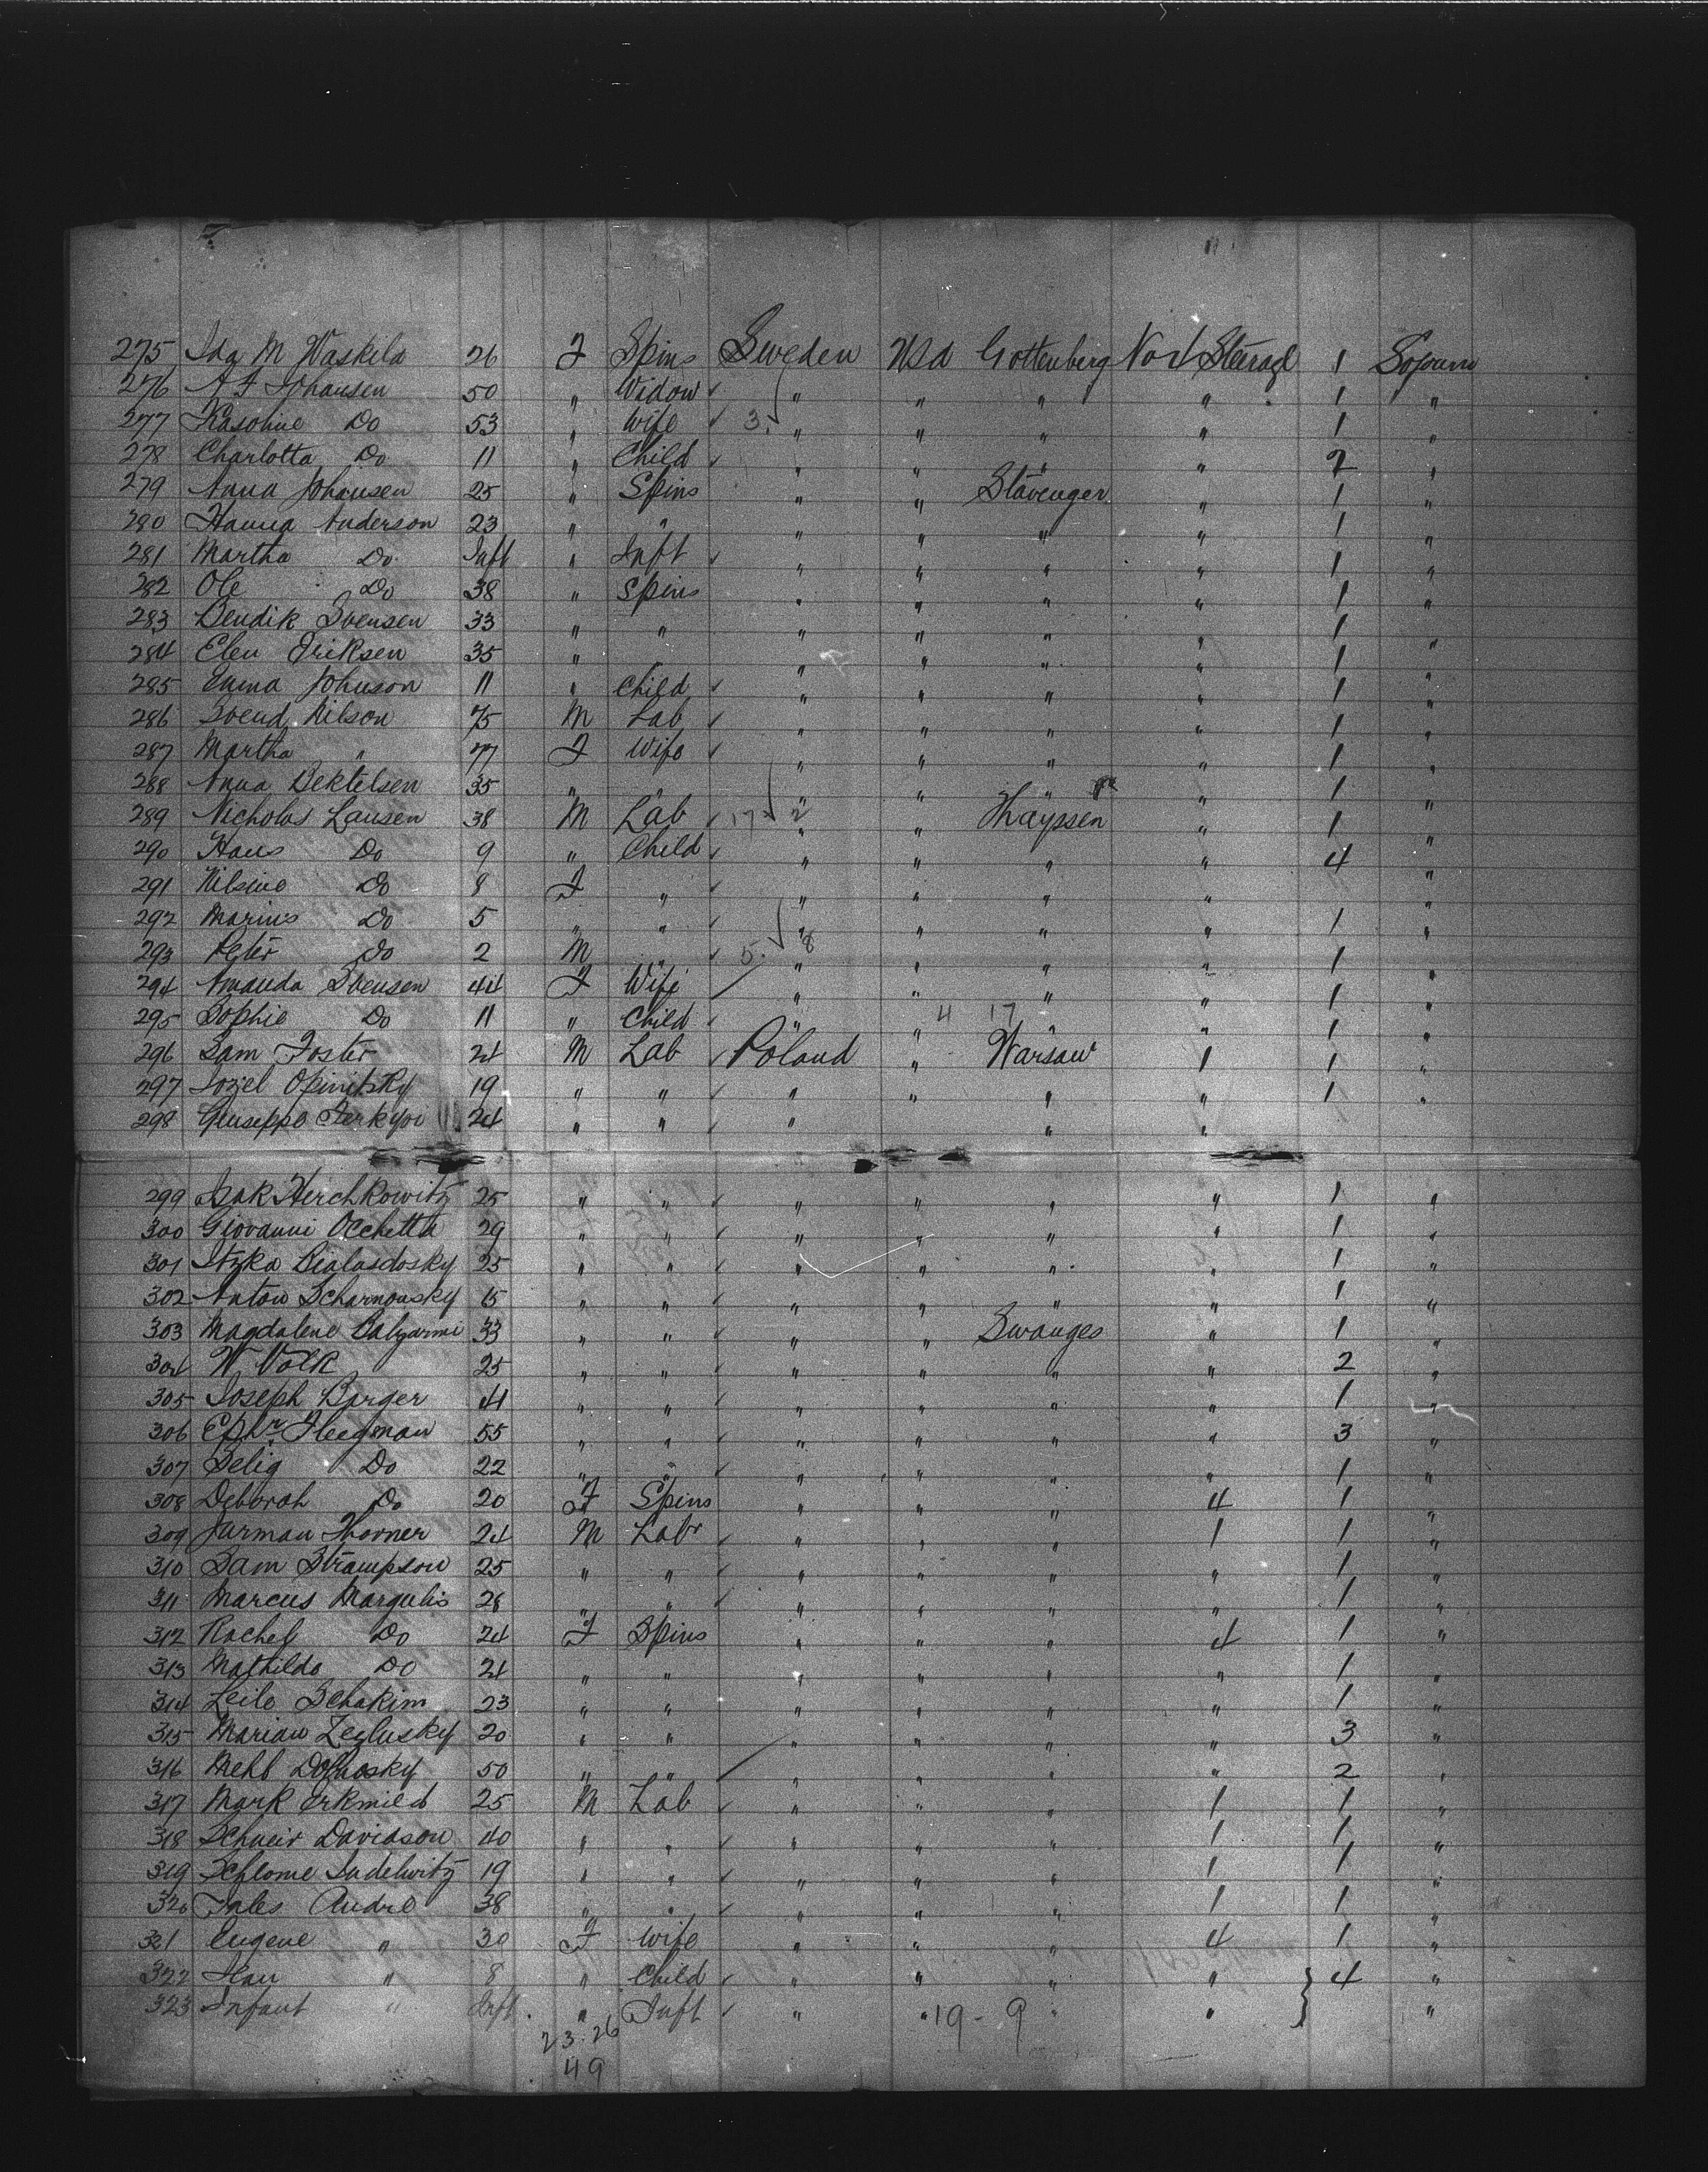 275 Ida M Waskela 26 F Spins Sweden USA Gottenberg No 1 Steerage 1 Sojourn
276 A F Johansen 50 " Widow " " " 1 "
277 Do 53 " Wife 3 " " " " 1 "
278 Charlotta Do 11 " Child " " " " 2 "
279 Anna Johansen 25 " Spins " " Stavenger " 1 "
280 Hanna Anderson 23 " " " " " " 1 "
281 Martha Do Inft " Inft " " " " 1 "
282 Ole Do 38 " Spins " " " " 1 "
283 Bendik Svensen 33 " " " " " " 1 "
284 Elen Eriksen 35 " " " " " 1 "
285 Emma Johnson 11 " Child " " " " 1 "
286 Svend Nilson 75 M Lab " " " " 1 "
287 Martha " 77 F Wife " " " " 1 "
288 Anna Bektelsen 35 " " " " " " 1 "
289 Nicholas Lausen 38 M Lab 17 2 " " Thayssen " 1 "
290 Hans Do 9 " Child " " " " 4 "
291 Nilsine Do 8 F " " " " "
292 Marius Do 5 " " " " " " 1 "
293 Peter Do 2 M " 5 8 " " " " 1 "
294 Amanda Svensen 44 F Wife " " " " 1 "
295 Sophie Do 11 " Child " " 4 17 " " 1 "
296 Sam Foster 24 M Lab Poland " Warsaw 1 1 "
297 Jozel Opinitsky 19 " " " " " " 1 "
298 Giuseppe 24 " " " " "
299 Isak Herchkowitz 25 " " " " " " 1 "
300 Giovanni Occhetta 29 " " " " " " 1 "
301 Itzka Bialasdosky 25 " " " " " " 1 "
302 Anton Scharnousky 15 " " " " " " 1 "
303 Magdalene Balzarmi 33 " " " " Swanges " 1 "
304 W Volk 25 " " " " " " 2 "
305 Joseph Berger 41 " " " " " " 1 "
306 Ephr Fleegman 55 " " " " " " 3 "
307 Selig Do 22 " " " " " " 1 "
308 Deborah Do 20 F Spins " " " 4 1 "
309 Jarman Thorner 24 M Labr " " " 1 1 "
310 Sam Strampson 25 " " " " " " 1 "
311 Marcus Margulis 28 " " " " " " 1 "
312 Rachel Do 24 F Spins " " " 4 1 "
313 Mathilde Do 21 " " " " " " 1 "
314 Leile Schakim 23 " " " " " " 1 "
315 Marian Zezlusky 20 " " " " " " 3 "
316 50 " " " " " " 2 "
317 Mark 25 M Lab " " " 1 1 "
318 Schneir Davidson 40 " " " " " 1 1 "
319 Schlome Judelwitz 19 " " " " " 1 1 "
320 Jules Andre 38 " " " " " 1 1 "
321 Eugene " 30 F Wife " " " 4 1 "
322 " 8 " Child " " " " } 4 "
323 Infant " Inft " Inft " " 19 - 9 " " "
23.26
49